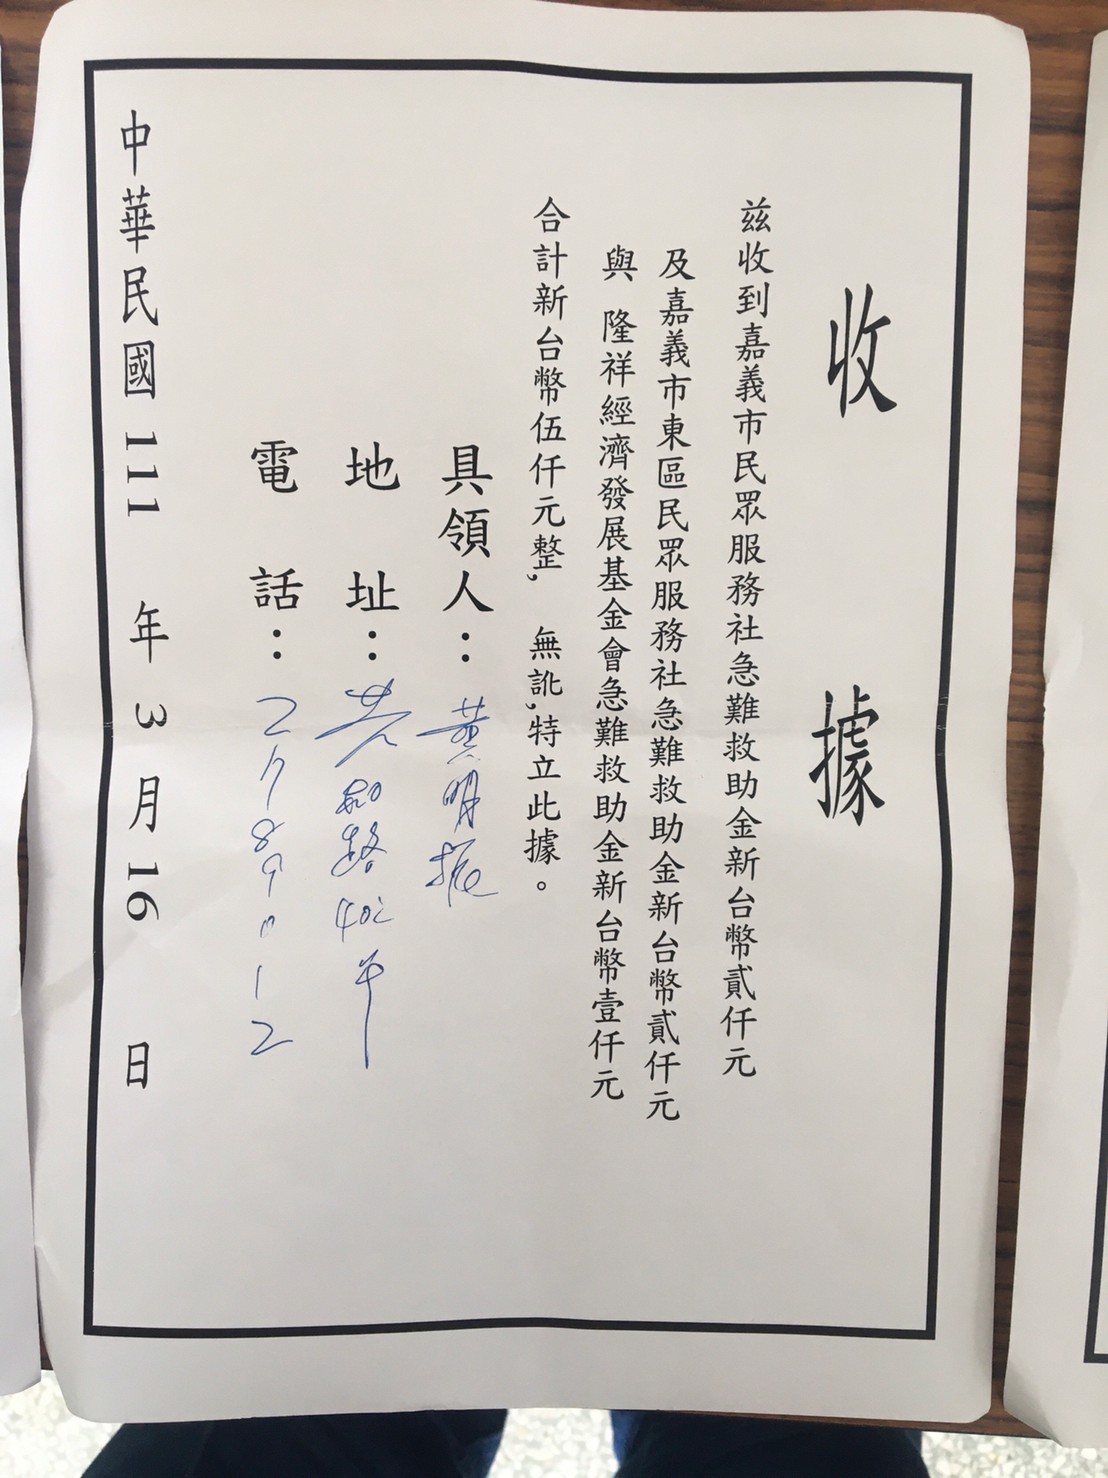 收據
茲收到嘉義市民眾服務社急難救助金新台幣貳仟元
及嘉義市東區民眾服務社急難救助金新台幣貳仟元
與 隆祥經濟發展基金會急難救助金新台幣壹仟元
合計新台幣伍仟元整, 無訛,特立此據。
具領人：黃明振
地址：路402
電話：2789012
中華民國 111 年 3 月 16 日